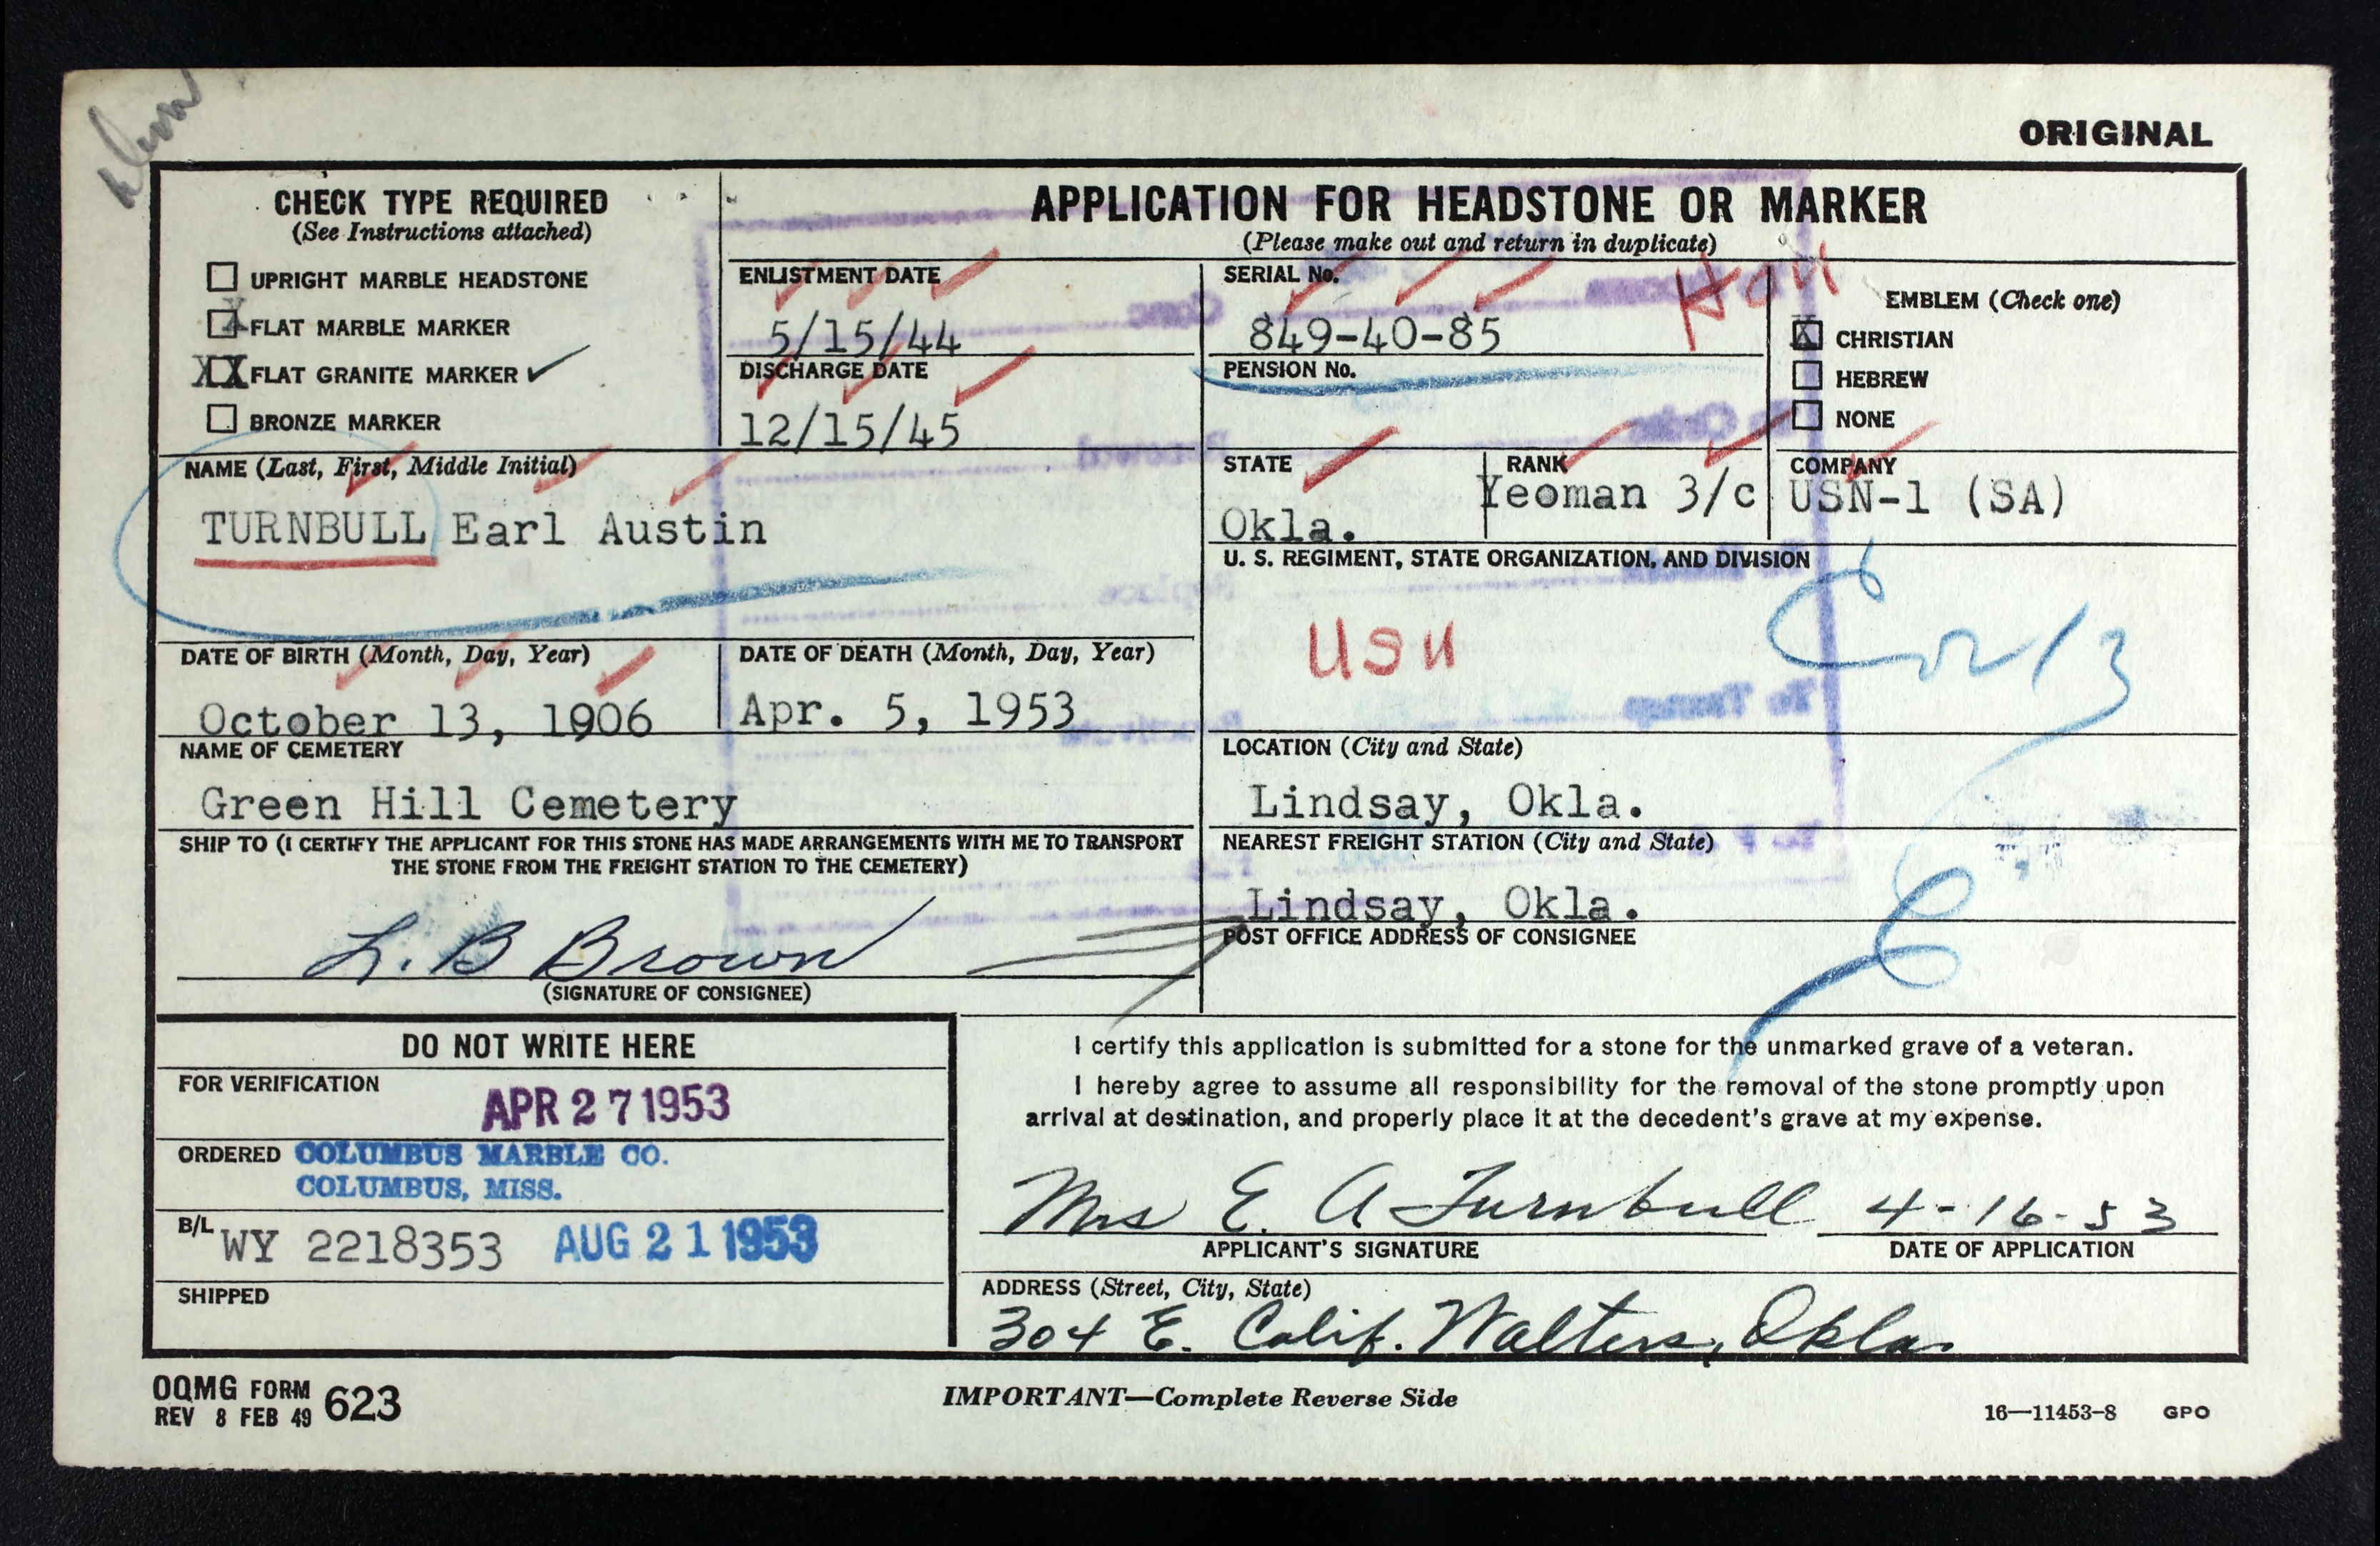 ORIGINAL
CHECK TYPE REQUIRED
(See Instructions attached)
UPRIGHT MARBLE HEADSTONE
X FLAT MARBLE MARKER
XX FLAT GRANITE MARKER ✓
BRONZE MARKER
APPLICATION FOR HEADSTONE OR MARKER
(Please make out and return in duplicate)
ENLISTMENT DATE
5/15/44
DISCHARGE DATE
12/15/45
SERIAL No.
849-40-85
PENSION No.
Hon
EMBLEM (Check one)
X CHRISTIAN
HEBREW
NONE
NAME (Last, First, Middle Initial)
TURNBULL Earl Austin
STATE
Okla.
RANK
Yeoman 3/c
COMPANY
USN-1 (SA)
U. S. REGIMENT, STATE ORGANIZATION, AND DIVISION
USN
DATE OF BIRTH (Month, Day, Year)
October 13, 1906
DATE OF DEATH (Month, Day, Year)
Apr. 5, 1953
NAME OF CEMETERY
Green Hill Cemetery
LOCATION (City and State)
Lindsay, Okla.
SHIP TO (I CERTIFY THE APPLICANT FOR THIS STONE HAS MADE ARRANGEMENTS WITH ME TO TRANSPORT
THE STONE FROM THE FREIGHT STATION TO THE CEMETERY)
L. B Brown
(SIGNATURE OF CONSIGNEE)
NEAREST FREIGHT STATION (City and State)
Lindsay, Okla.
POST OFFICE ADDRESS OF CONSIGNEE
DO NOT WRITE HERE
FOR VERIFICATION
APR 27 1953
ORDERED COLUMBUS MARBLE CO.
COLUMBUS, MISS.
B/L WY 2218353 AUG 21 1953
SHIPPED
I certify this application is submitted for a stone for the unmarked grave of a veteran.
I hereby agree to assume all responsibility for the removal of the stone promptly upon
arrival at destination, and properly place it at the decedent's grave at my expense.
Mrs E. A Turnbull 4-16-53
APPLICANT'S SIGNATURE DATE OF APPLICATION
ADDRESS (Street, City, State)
304 E. Calif. Walters, Okla.
OQMG FORM 623
REV 8 FEB 49
IMPORTANT—Complete Reverse Side
16—11453-8 GPO